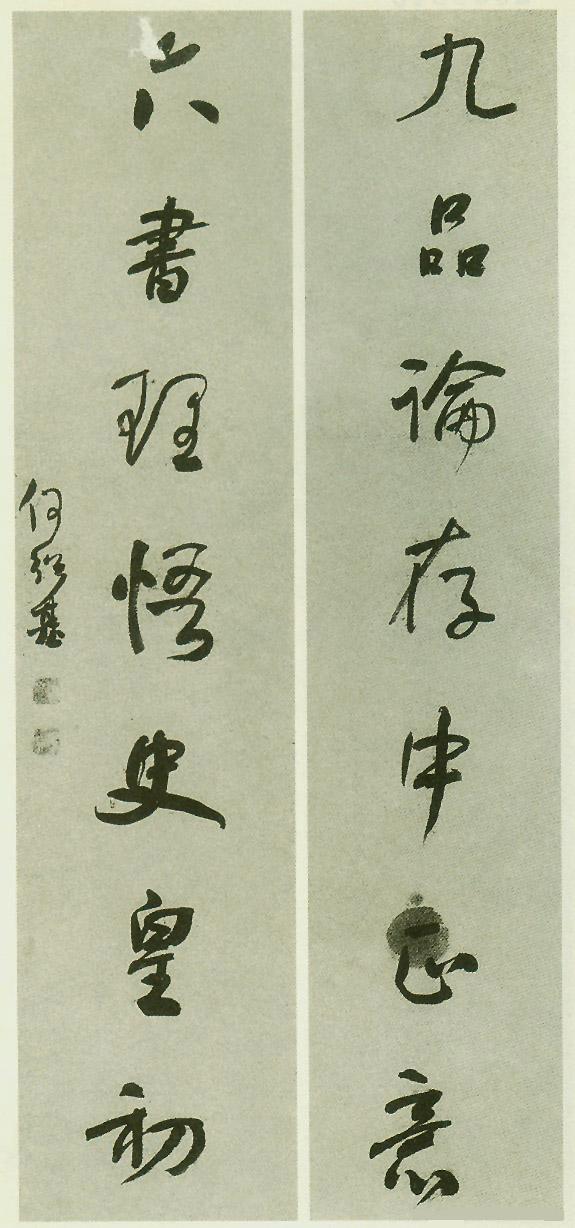 九品論存中正意
六書理悟史皇初
何紹基